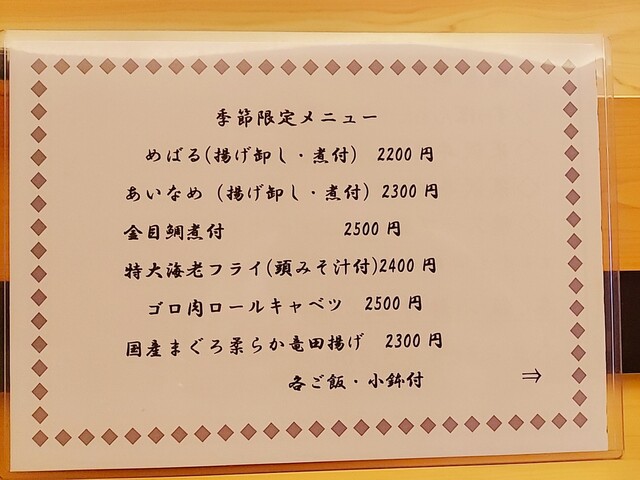 季節限定メニュー
めばる(揚げ卸し・煮付) 2200円
あいなめ (揚げ卸し・煮付) 2300円
金目鯛煮付 2500円
特大海老フライ(頭みそ汁付)2400円
ゴロ肉ロールキャベツ 2500円
国産まぐろ柔らか竜田揚げ 2300円
各ご飯・小鉢付 ⇒